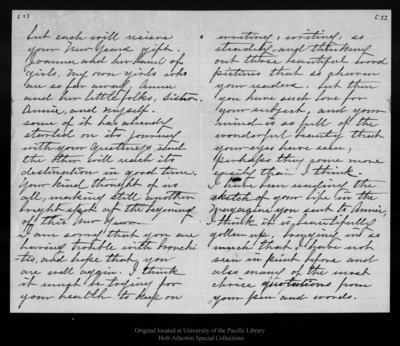 but each will recieve
your New Years gift.
Joanna and her band of
girls, my own girls who
are so far away, Anna
and her little folks, Sister
Annie, and myself.
some of it has already
started on its journey
with your Greetings, and
the other will reach its
destination in good time.
Your kind thought of us
all, making still another
bright spot up the beginning
of this New Year.
I am sorry that you are
having trouble with bronchi-
tis, and hope that you
are well again. I think
it must be trying for
your health to keep on
writing, writing, so
steadily, and thinking
out those beautiful word
pictures that so charm
your readers. but then
you have such love for
your subject, and your
mind is so full of the
wonderful beauty that
your eyes have seen,
perhaps they come more
easily than I think.
I have been reading the
sketch of your life in the
Magazine you sent to Annie,
I think it is beautifully
gotten up, bringing in so
much that I have not
seen in print before and
also many of the most
choice quotations from
your pen and words.
Original located at University of the Pacific Library
Holt-Atherton Special Collections